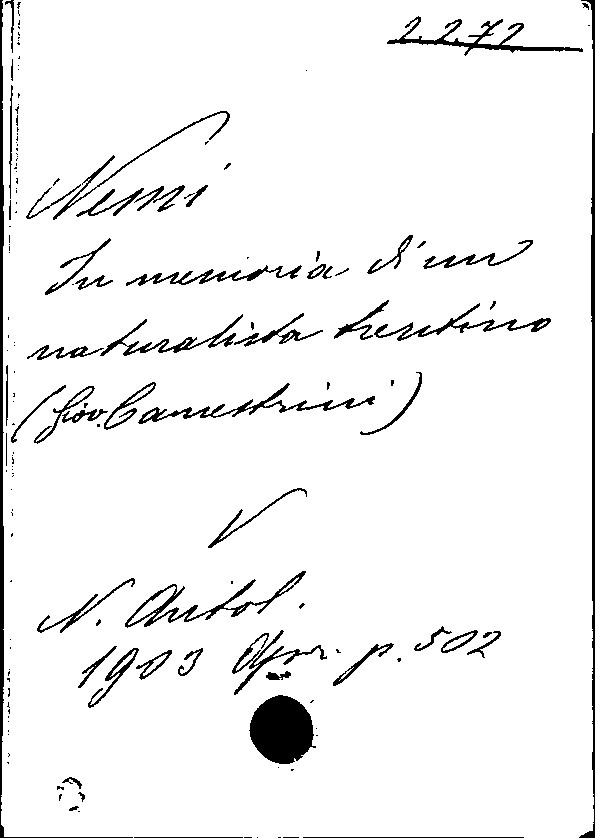 2.2.72
Nemi
In memoria di un
naturalista trentino
(Giov. Canestrini)
V
N. Antol.
1903 Apr. p. 502